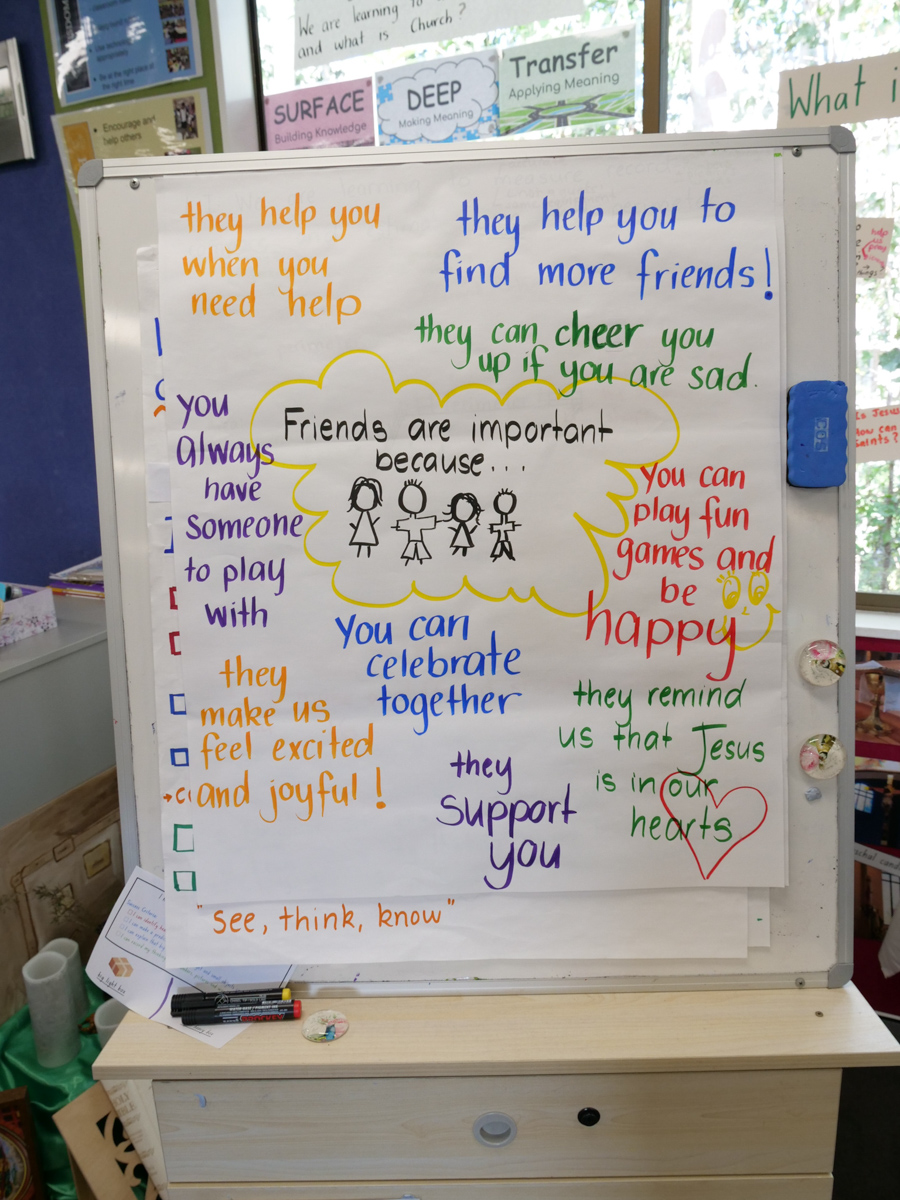 We are learning to
and what is Church?
SURFACE
Building Knowledge
DEEP
Making Meaning
Transfer
Applying Meaning
What i
Encourage and
help others
they help you
when you
need help
they help you to
find more friends!
they can cheer you
up if you are sad.
you
always
have
someone
to play
with
Friends are important
because...
you can
play fun
games and
be
happy
You can
celebrate
together
they
make us
feel excited
and joyful!
they remind
us that Jesus
is in our
hearts
they
support
you
"see, think, know"